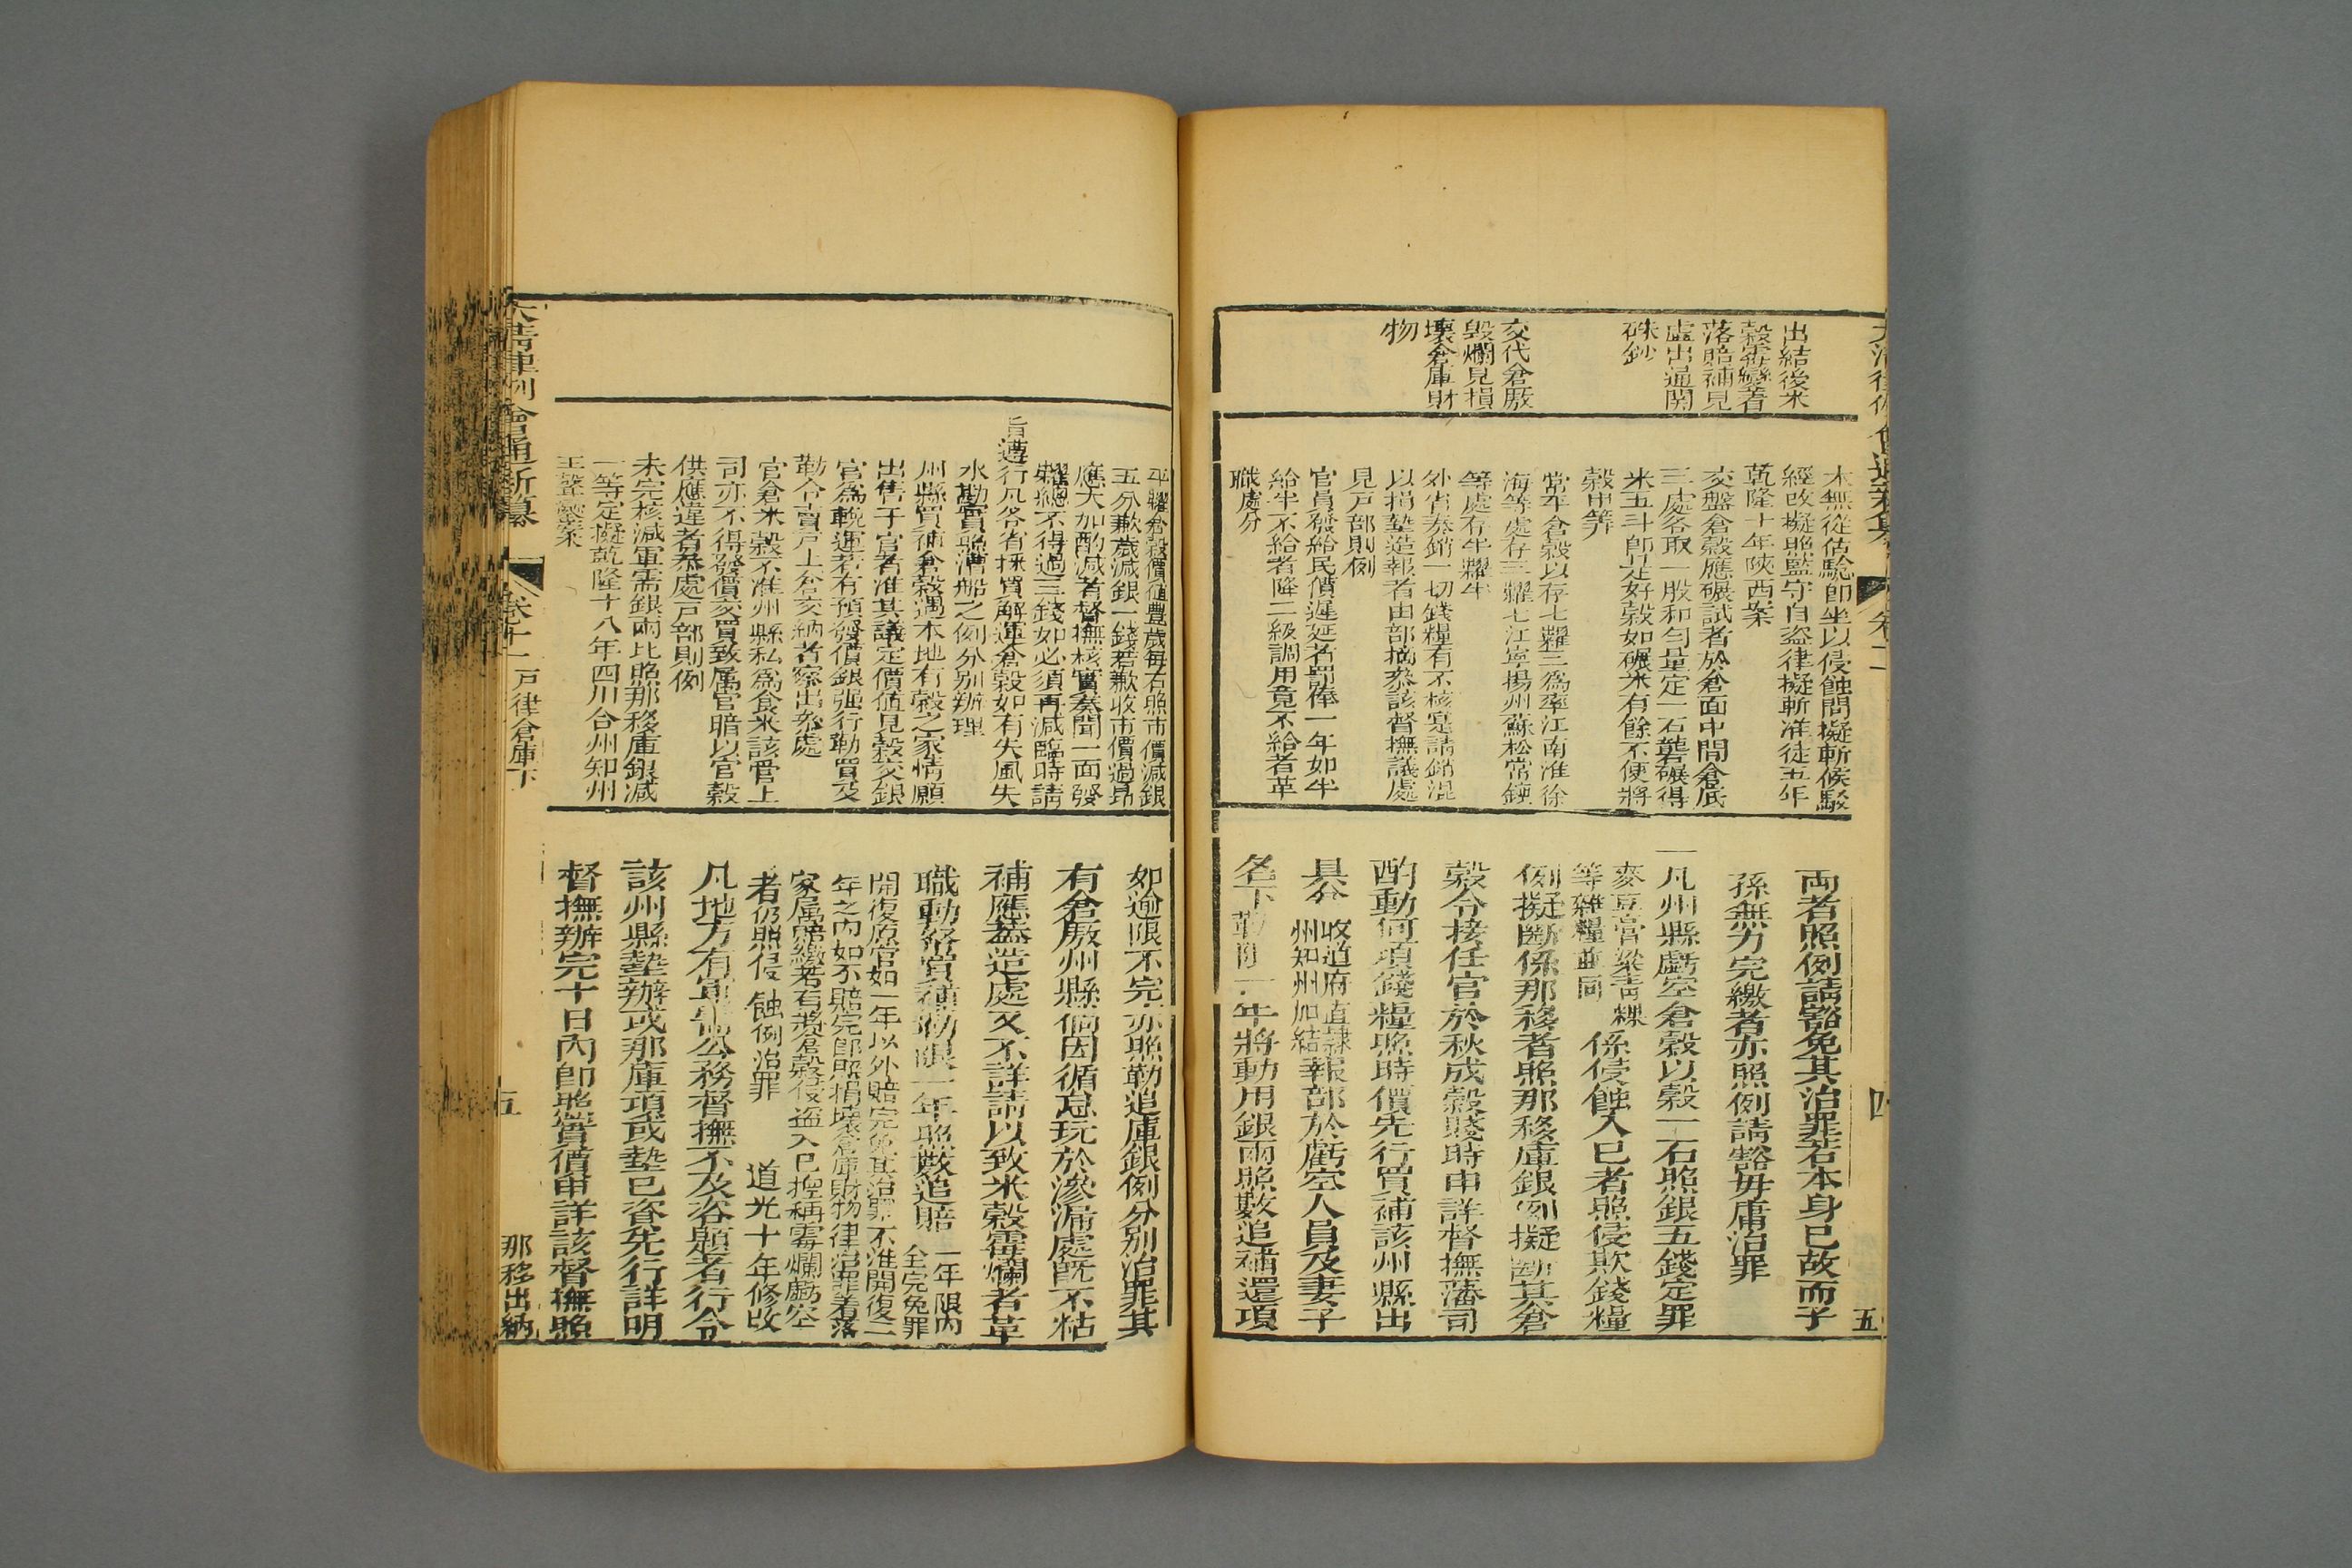 出結後米
穀霉變者
落賠補見
虛出通関
硃鈔
交代倉厫
毁爛見損
壞倉庫財
物
米無從估騐卽坐以侵蝕問擬斬候駁
經改擬照監守自盜律擬斬准徒五年
乾隆十年陝西案
交盤倉穀應碾試者於倉面中間倉底
三處各取一股和勻量定一石碧碾得
米五斗卽是好穀如碾米有餘不便將
穀申筭
常平倉穀以存七糶三為率江南淮徐
海等處存三糶七江寧揚州蘇松常鎮
等處存半糶半
外省奏銷一切錢糧有不核寔請銷混
以捐墊造報者由部摘叅該督撫議處
見戸部則例
官員發給民價遲延者罰俸一年如半
給半不給者降二級調用竟不給者革
職處分
両者照例請豁免其治罪若本身已故而子
孫無力完繳者亦照例請豁毋庸治罪
一凡州縣虧空倉穀以穀一石照銀五錢定罪
麥豆膏粱靑稞
等雜糧並同
係侵蝕入已者照侵欺錢糧
例擬斷係那移者照那移庫銀例擬斷其倉
穀令接任官於秋成穀賤時申詳督撫藩司
酌動何項錢糧照時價先行買補該州縣出
具分
收道府直隷
州知州加結
報部於虧空人員及妻子
名下勒限一年將動用銀両照數追補還項
四
五
平糶倉穀價值豐歲每石照市價減銀
五分歉歲減銀一錢若歉收市價過昻
應大加酌減者督撫核實奏聞一面發
糶總不得過三錢如必須再減臨時請
旨遵行凡各省採買解運倉穀如有失風失
水勘實照漕船之例分别辦理
州縣買補倉穀遇本地有穀之家情願
出售于官者准其議定價值見穀交銀
官為輓運若有預發價銀强行勒買及
勒令賣戸上倉交納者察出叅處
官倉米穀不准州縣私為食米該管上
司亦不得發價交買致属官暗以官穀
供應違者叅處戸部則例
未完核減軍需銀両比照那移庫銀減
一等定擬乾隆十八年四川合州知州
王聲鑾案
如逾限不完亦照勒追庫銀例分别治罪其
有倉厫州縣倘因循怠玩於滲漏處既不粘
補應葢造處又不詳請以致米穀霉爛者革
職動帑買補勒限一年照數追賠
一年限内
全完免罪
開復原官如一年以外賠完免其治罪不准開復二
年之内如不賠完卽照損壞倉庫財物律治罪着落
家属賠繳若有將倉穀侵盜入已揑稱霉爛虧空
者仍照侵蝕例治罪 道光十年修改
凡地方有軍需公務督撫不及咨題者行令
該州縣墊辦或那庫項或墊已資先行詳明
督撫辦完十日内卽照實價申詳該督撫照
大清律例會通新纂 卷十一 戸律倉庫下
五
那移出納